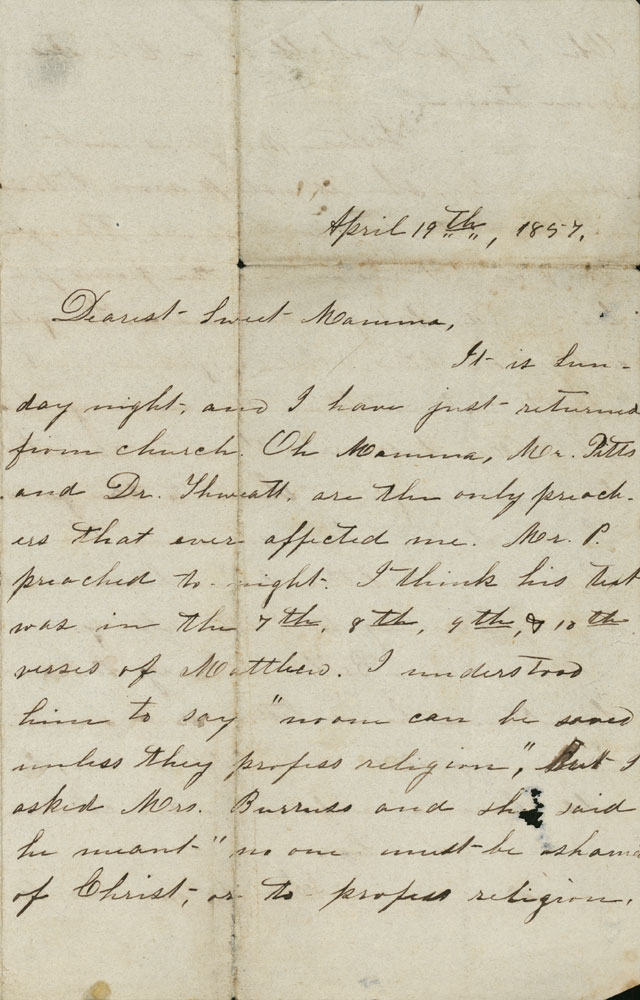 April 19th, 1857.
Dearest Sweet Mamma,
It is Sun-
day night, and I have just returned
from church. Oh Mamma, Mr. Pitts
and Dr. Thweatt, are the only preach-
ers that ever affected me. Mr. P.
preached to-night. I think his text
was in the 7th, 8th, 9th, & 10th
verses of Matthew. I understood
him to say "no one can be saved
unless they profess religion", But I
asked Mrs. Burruss and she said
he meant "no one must be asham
of Christ, or to profess religion.